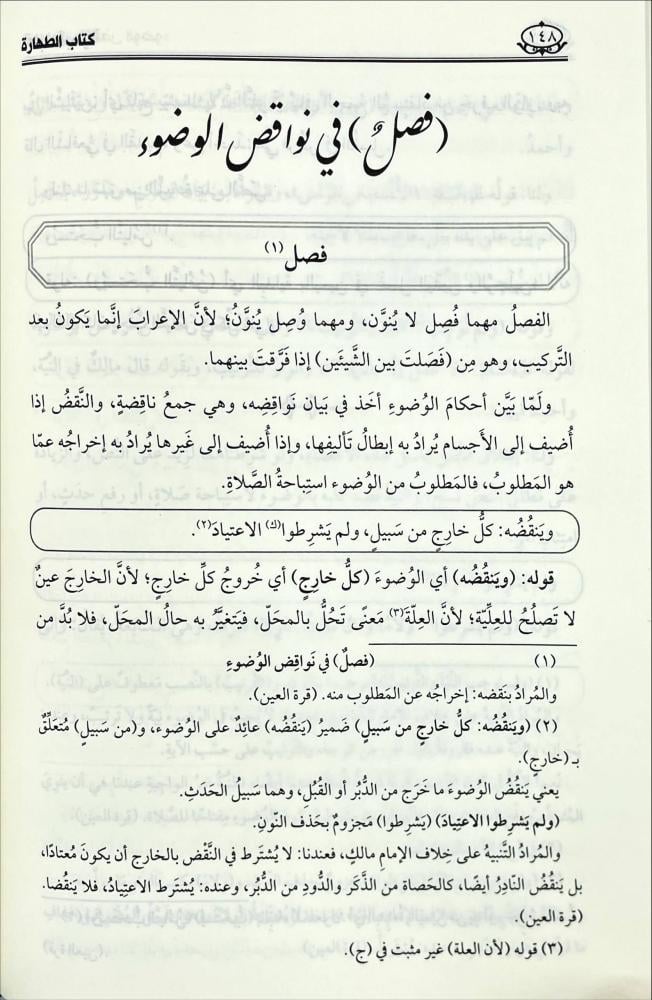 ١٤٨
كتاب الطهارة
(فصلٌ) في نواقض الوضوء
فصل (١)
الفصلُ مهما فُصِل لا يُنوَّن، ومهما وُصِل يُنوَّنُ؛ لأنَّ الإعرابَ إنَّما يَكونُ بعد
التَّركيب، وهو مِن (فَصَلتَ بين الشَّيئَين) إذا فَرَّقتَ بينهما.
ولَمّا بَيَّن أحكامَ الوُضوءِ أخذ في بَيَان نَوَاقِضِه، وهي جمعُ ناقِضةٍ، والنَّقضُ إذا
أُضيف إلى الأَجسام يُرادُ به إبطالُ تَأليفِها، وإذا أُضيف إلى غَيرها يُرادُ به إخراجُه عمّا
هو المَطلوبُ، فالمَطلوبُ من الوُضوء استِباحةُ الصَّلاةِ.
ويَنقُضُه: كلُّ خارِجٍ من سَبيلٍ، ولم يَشرِطوا(ك) الاعتيادَ(٢).
قوله: (ويَنقُضُه) أي الوُضوءَ (كلُّ خارِجٍ) أي خُروجُ كلِّ خارِجٍ؛ لأنَّ الخارِجَ عينٌ
لا تَصلُحُ للعِلِّيّة؛ لأنَّ العِلّةَ(٣) مَعنًى تَحُلُّ بالمحَلّ، فيَتغيَّرُ به حالُ المحَلّ، فلا بُدَّ من
(١) (فصلٌ) في نَواقِضِ الوُضوءِ
والمُرادُ بنقضه: إخراجُه عن المَطلوب منه. (قرة العين).
(٢) (ويَنقُضُه: كلُّ خارِجٍ من سَبيلٍ) ضَميرُ (يَنقُضُه) عائِدٌ على الوُضوء، و(من سَبيلٍ) مُتعَلِّقٌ
بـ(خارِجٍ).
يعني يَنقُضُ الوُضوءَ ما خَرَج من الدُّبُر أو القُبُل، وهما سَبيلُ الحَدَثِ.
(ولم يَشرِطوا الاعتِيادَ) (يَشرِطوا) مَجزومٌ بحَذف النّونِ.
والمُرادُ التَّنبيهُ على خِلاف الإمام مالكٍ، فعندنا: لا يُشتَرط في النَّقض بالخارج أن يكونَ مُعتادًا،
بل يَنقُضُ النّادِرُ أيضًا، كالحَصاة من الذَّكَر والدُّودِ من الدُّبُر، وعنده: يُشتَرط الاعتِيادُ، فلا يَنقُضا.
(قرة العين).
(٣) قوله (لأن العلة) غير مثبت في (ج).